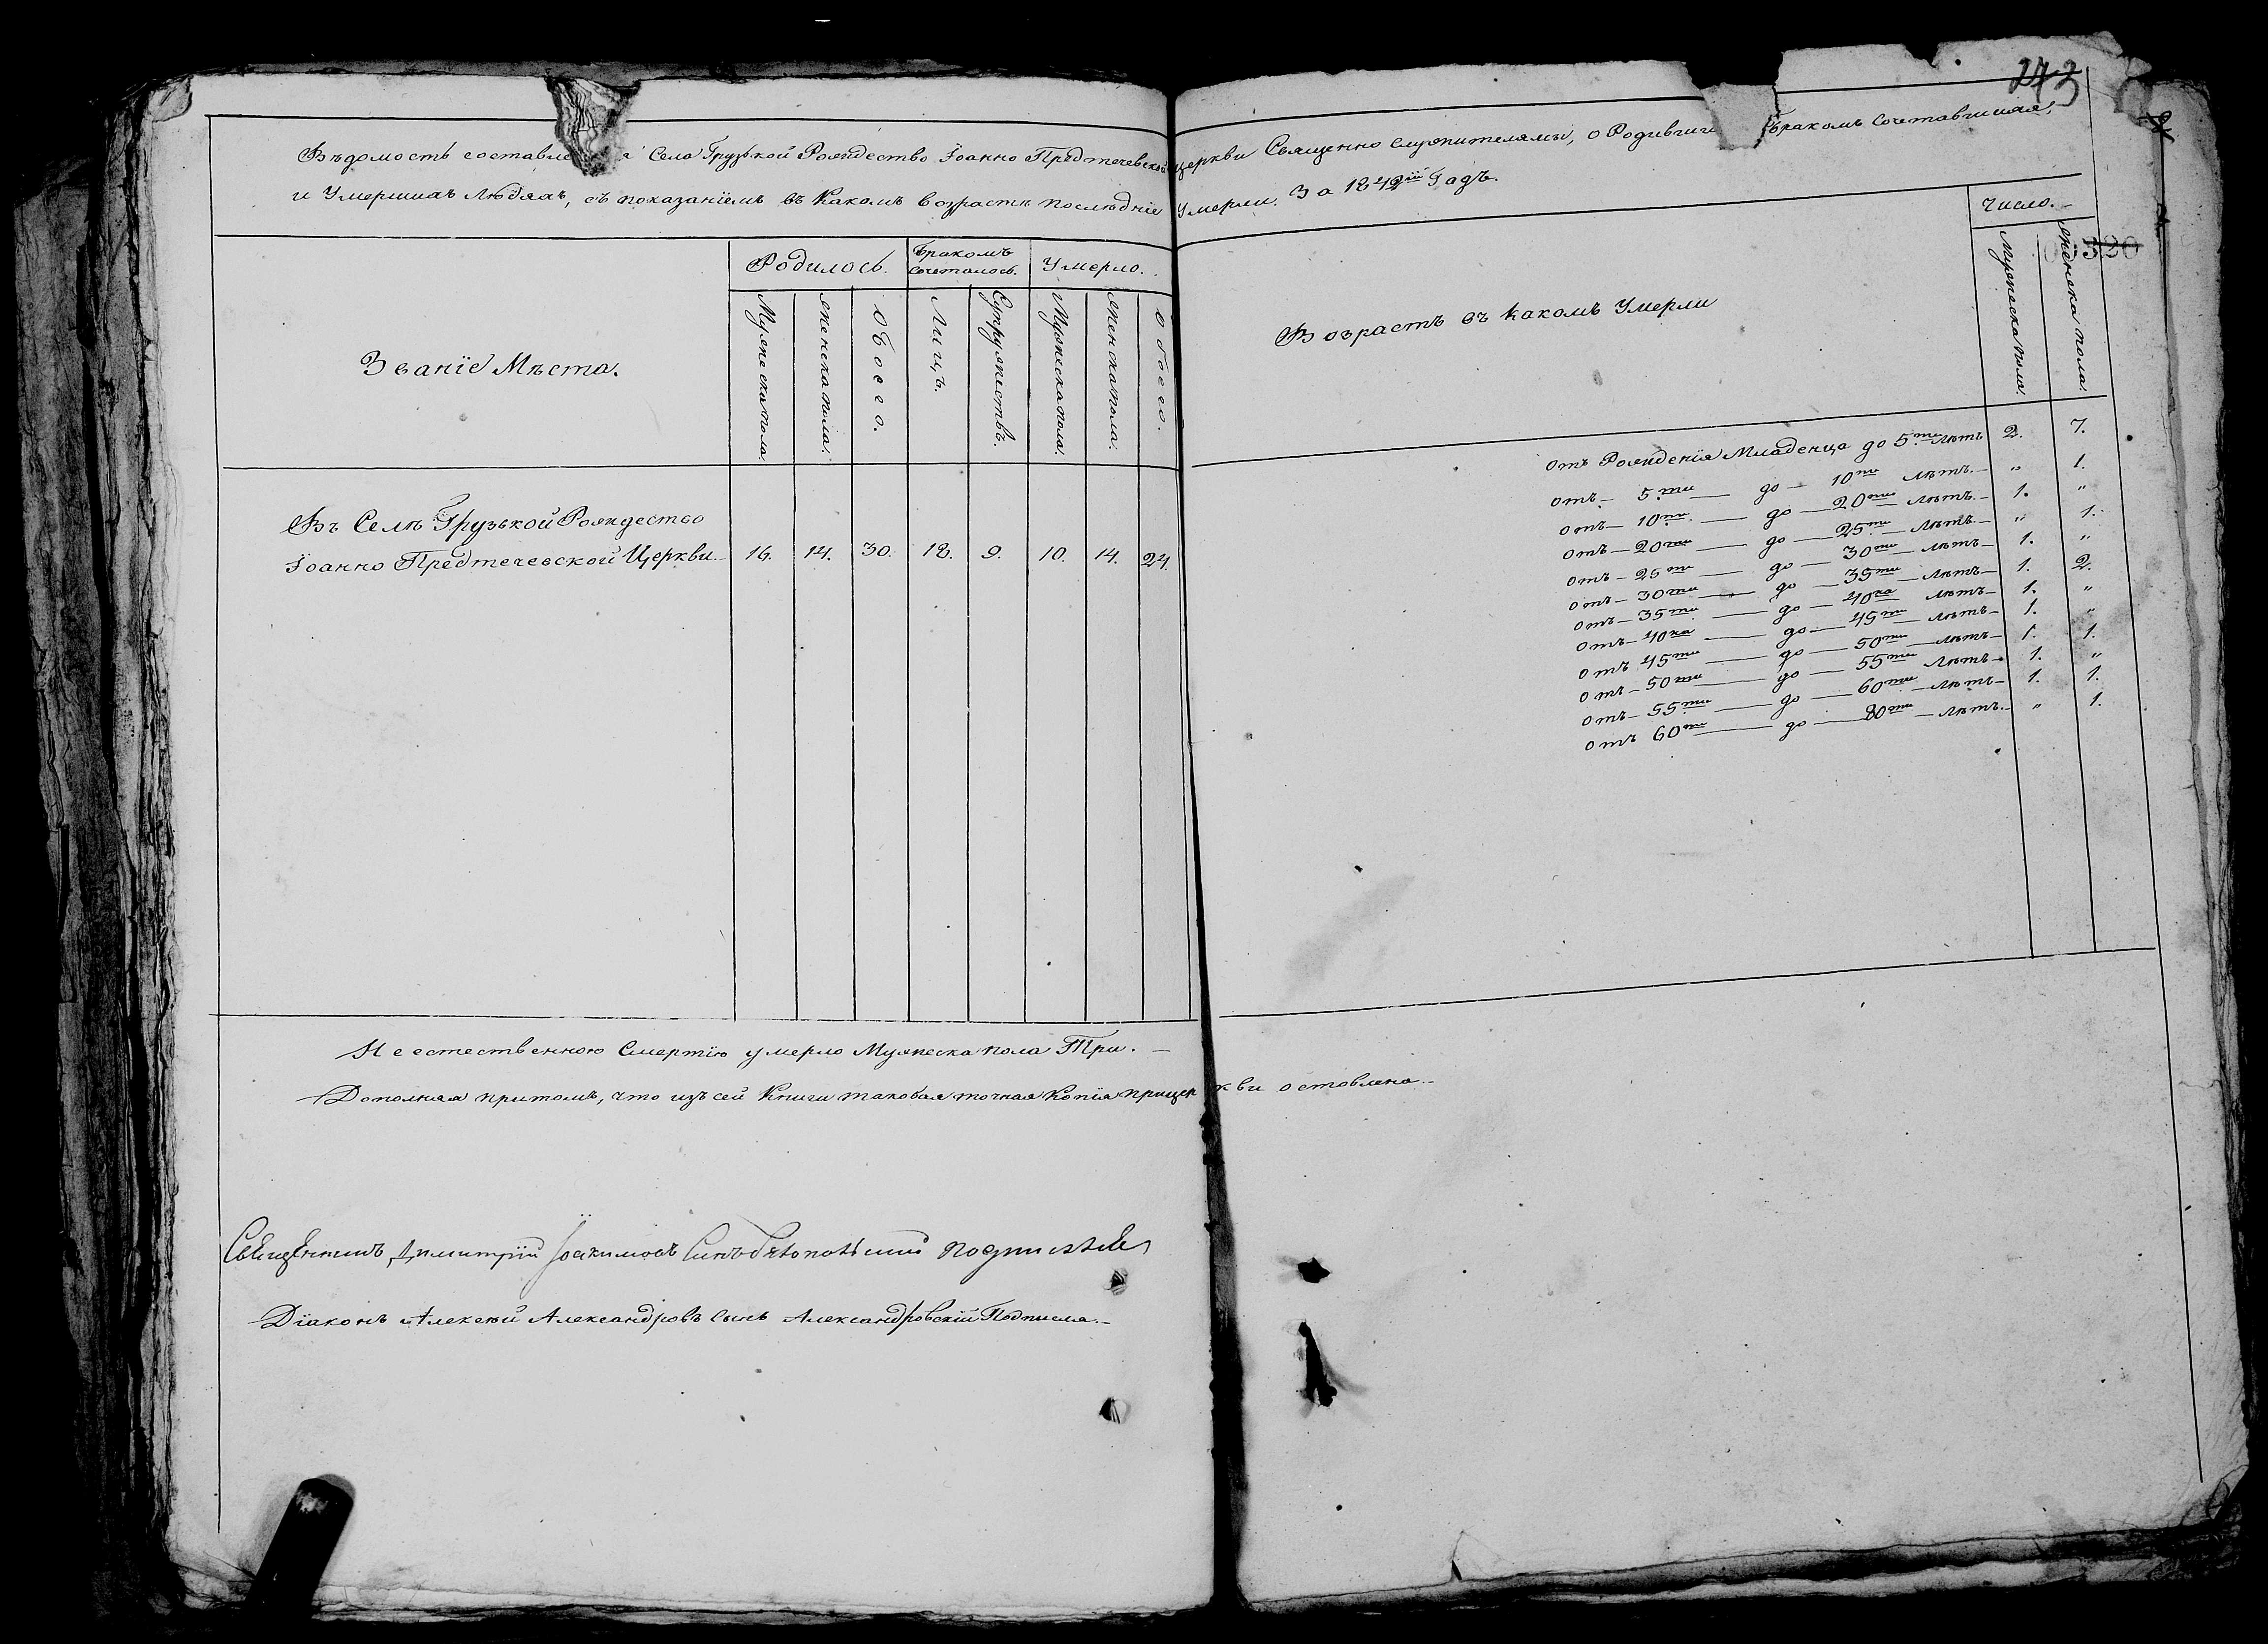 243
Вѣдомость составле я Села Грузької Рождество Іоанно Предтечевской церкви Священно служителями, о Родивши бракомъ сочетавшихся,
и Умершихъ Людяхъ, съ показаніемъ въ какомъ возрастѣ послѣдніе Умерли. За 1842й Годъ.
320
Званіе Мѣста.
Родилось.
Бракомъ сочеталось.
Умерло.
Мужеска пола.
Женска пола.
Обоего.
Лицъ.
Супружествъ.
Мужеска пола.
Женска пола.
Обоего.
Возрастъ въ какомъ Умерли
Число.
Мужеска пола.
Женска пола.
Въ Селѣ Грузької Рождество
Іоанно Предтечевской Церкви 16. 14. 30. 18. 9. 10. 14. 24.
отъ Рожденія Младенца до 5.ти лѣтъ 2. 7.
отъ 5.ти до 10ти лѣтъ „ 1.
отъ 10ти до 20ти лѣтъ 1. „
отъ 20ти до 25ти лѣтъ „ 1.
отъ 25ти до 30ти лѣтъ 1. „
отъ 30ти до 35ти лѣтъ 1. 2.
отъ 35ти до 40ка лѣтъ 1. „
отъ 40ка до 45ти лѣтъ 1. „
отъ 45ти до 50ти лѣтъ 1. 1.
отъ 50ти до 55ти лѣтъ 1. „
отъ 55ти до 60ти лѣтъ 1. 1.
отъ 60ти до 80ти лѣтъ „ 1.
Неестественною Смертію умерло Мужеска пола Три.
Дополняя притомъ, что изъ сей Книги таковая точная Копія при церкви оставлена.
Священникъ Димитрій Іоакимовъ Синъ подписался
Діаконъ Алексѣй Александровъ сынъ Александровскій Подписал.